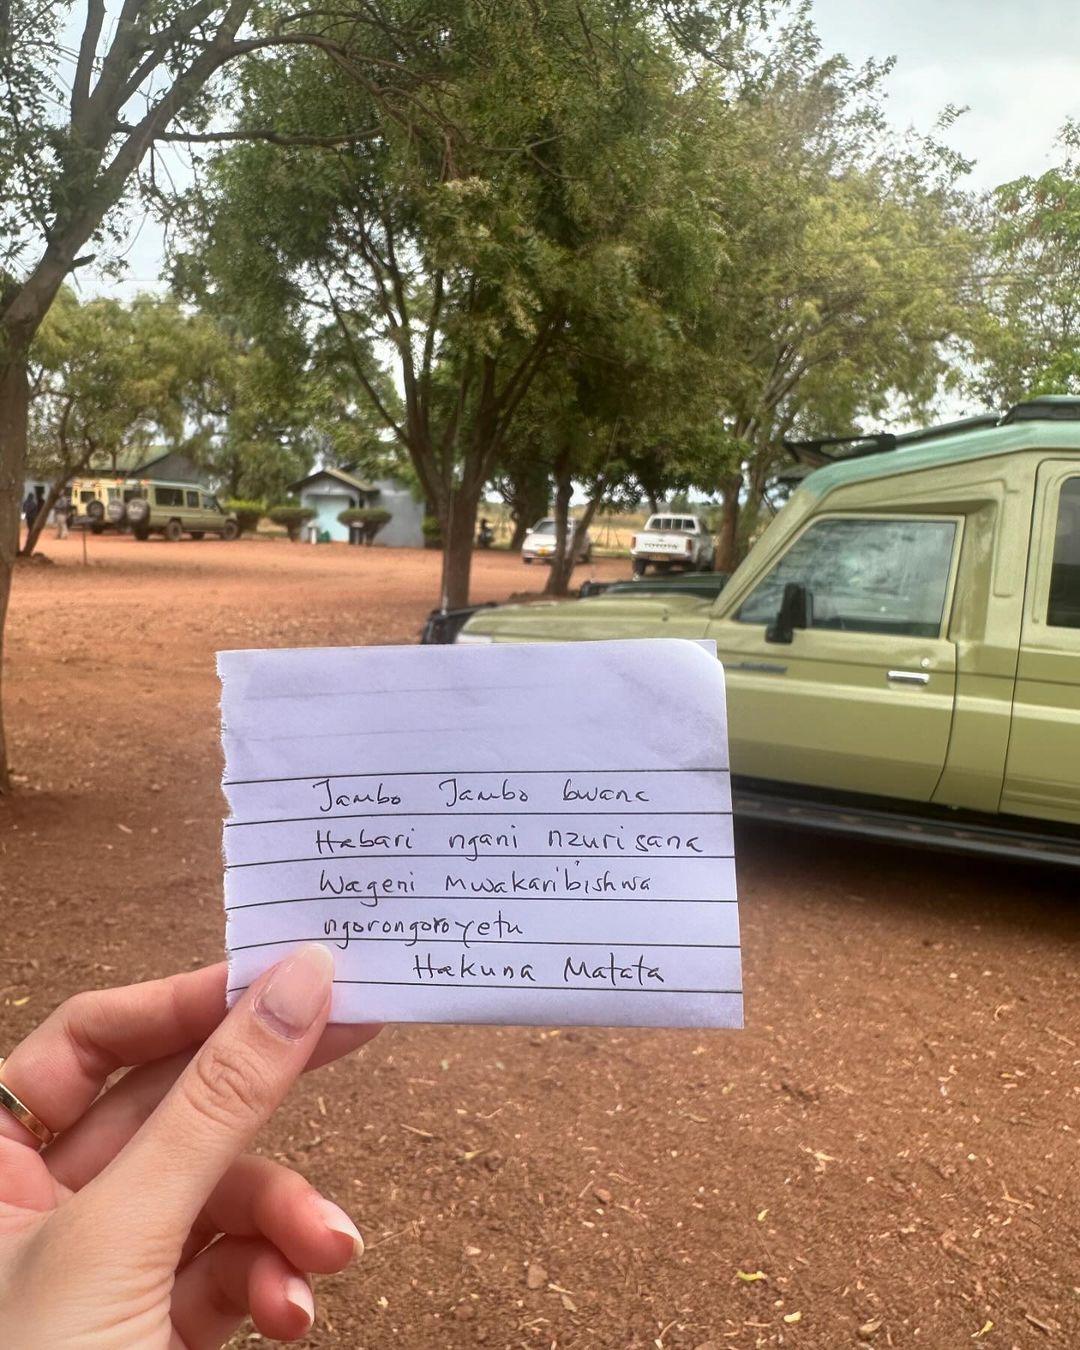 Jambo Jambo bwana
Habari ngani nzuri sana
Wageni Mwakaribishwa
ngorongoro yetu
Hakuna Matata
TOYOTA